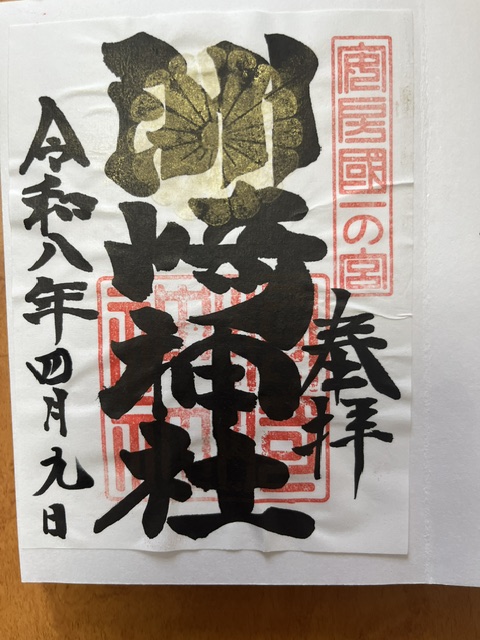 安房國一の宮
奉拝
洲崎神社
令和八年四月九日